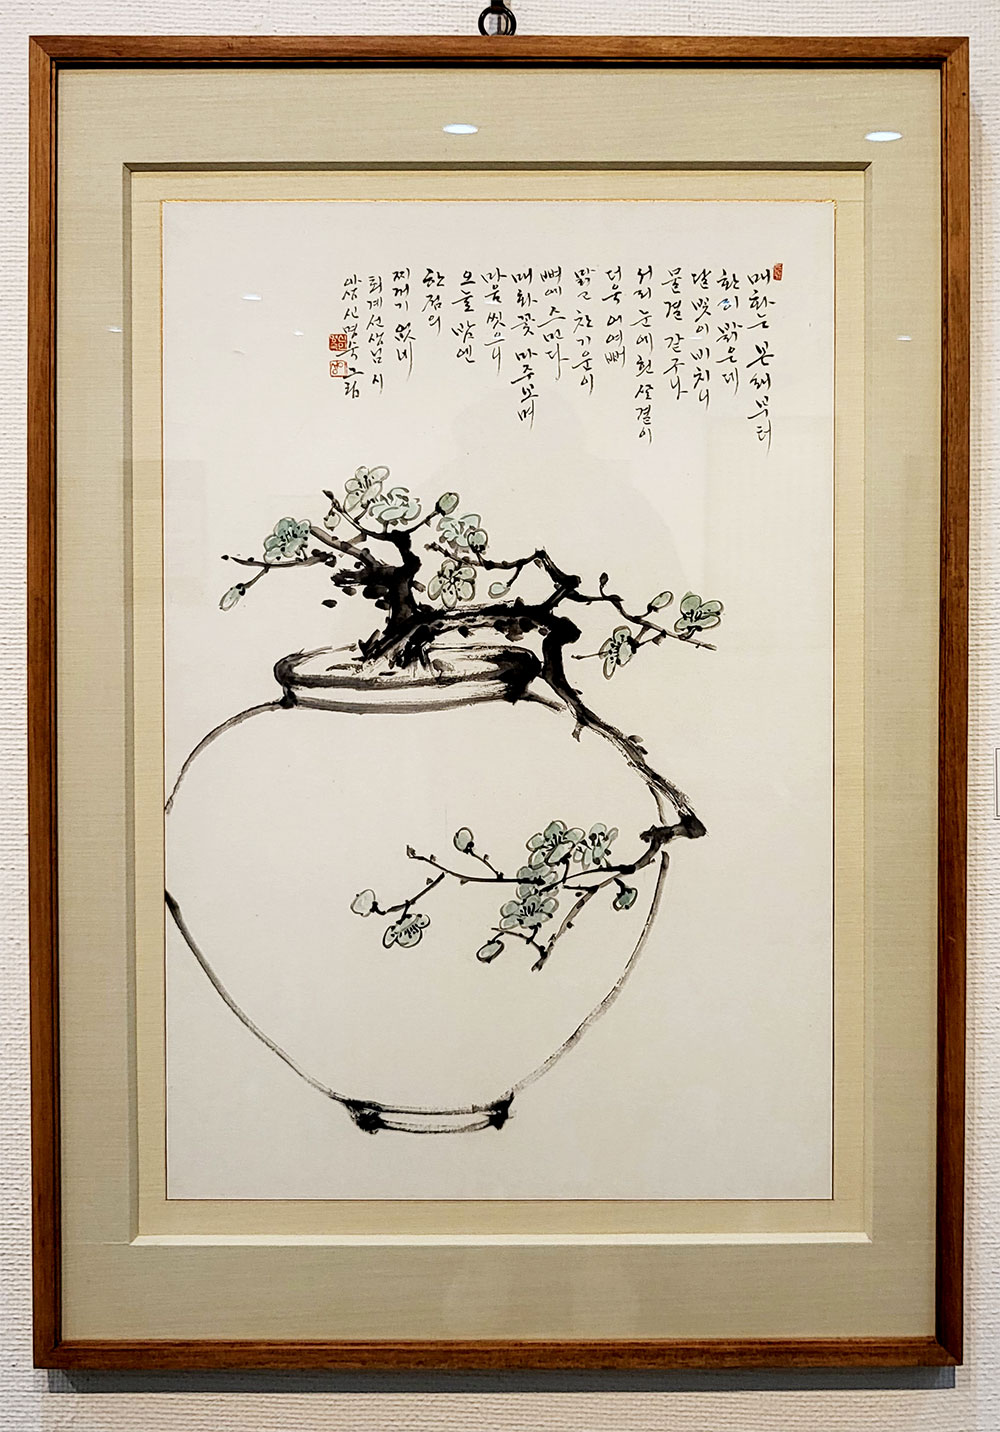 매화는 본래부터
환히 밝은데
달빛이 비치니
물결 같구나
서리 눈에 흰 살결이
더욱 어여뻐
맑고 찬 기운이
뼈에 스민다
매화꽃 마주보며
마음 씻으니
오늘 밤엔
한 점의
찌꺼기 없네
퇴계선생님 시
신명숙 그림